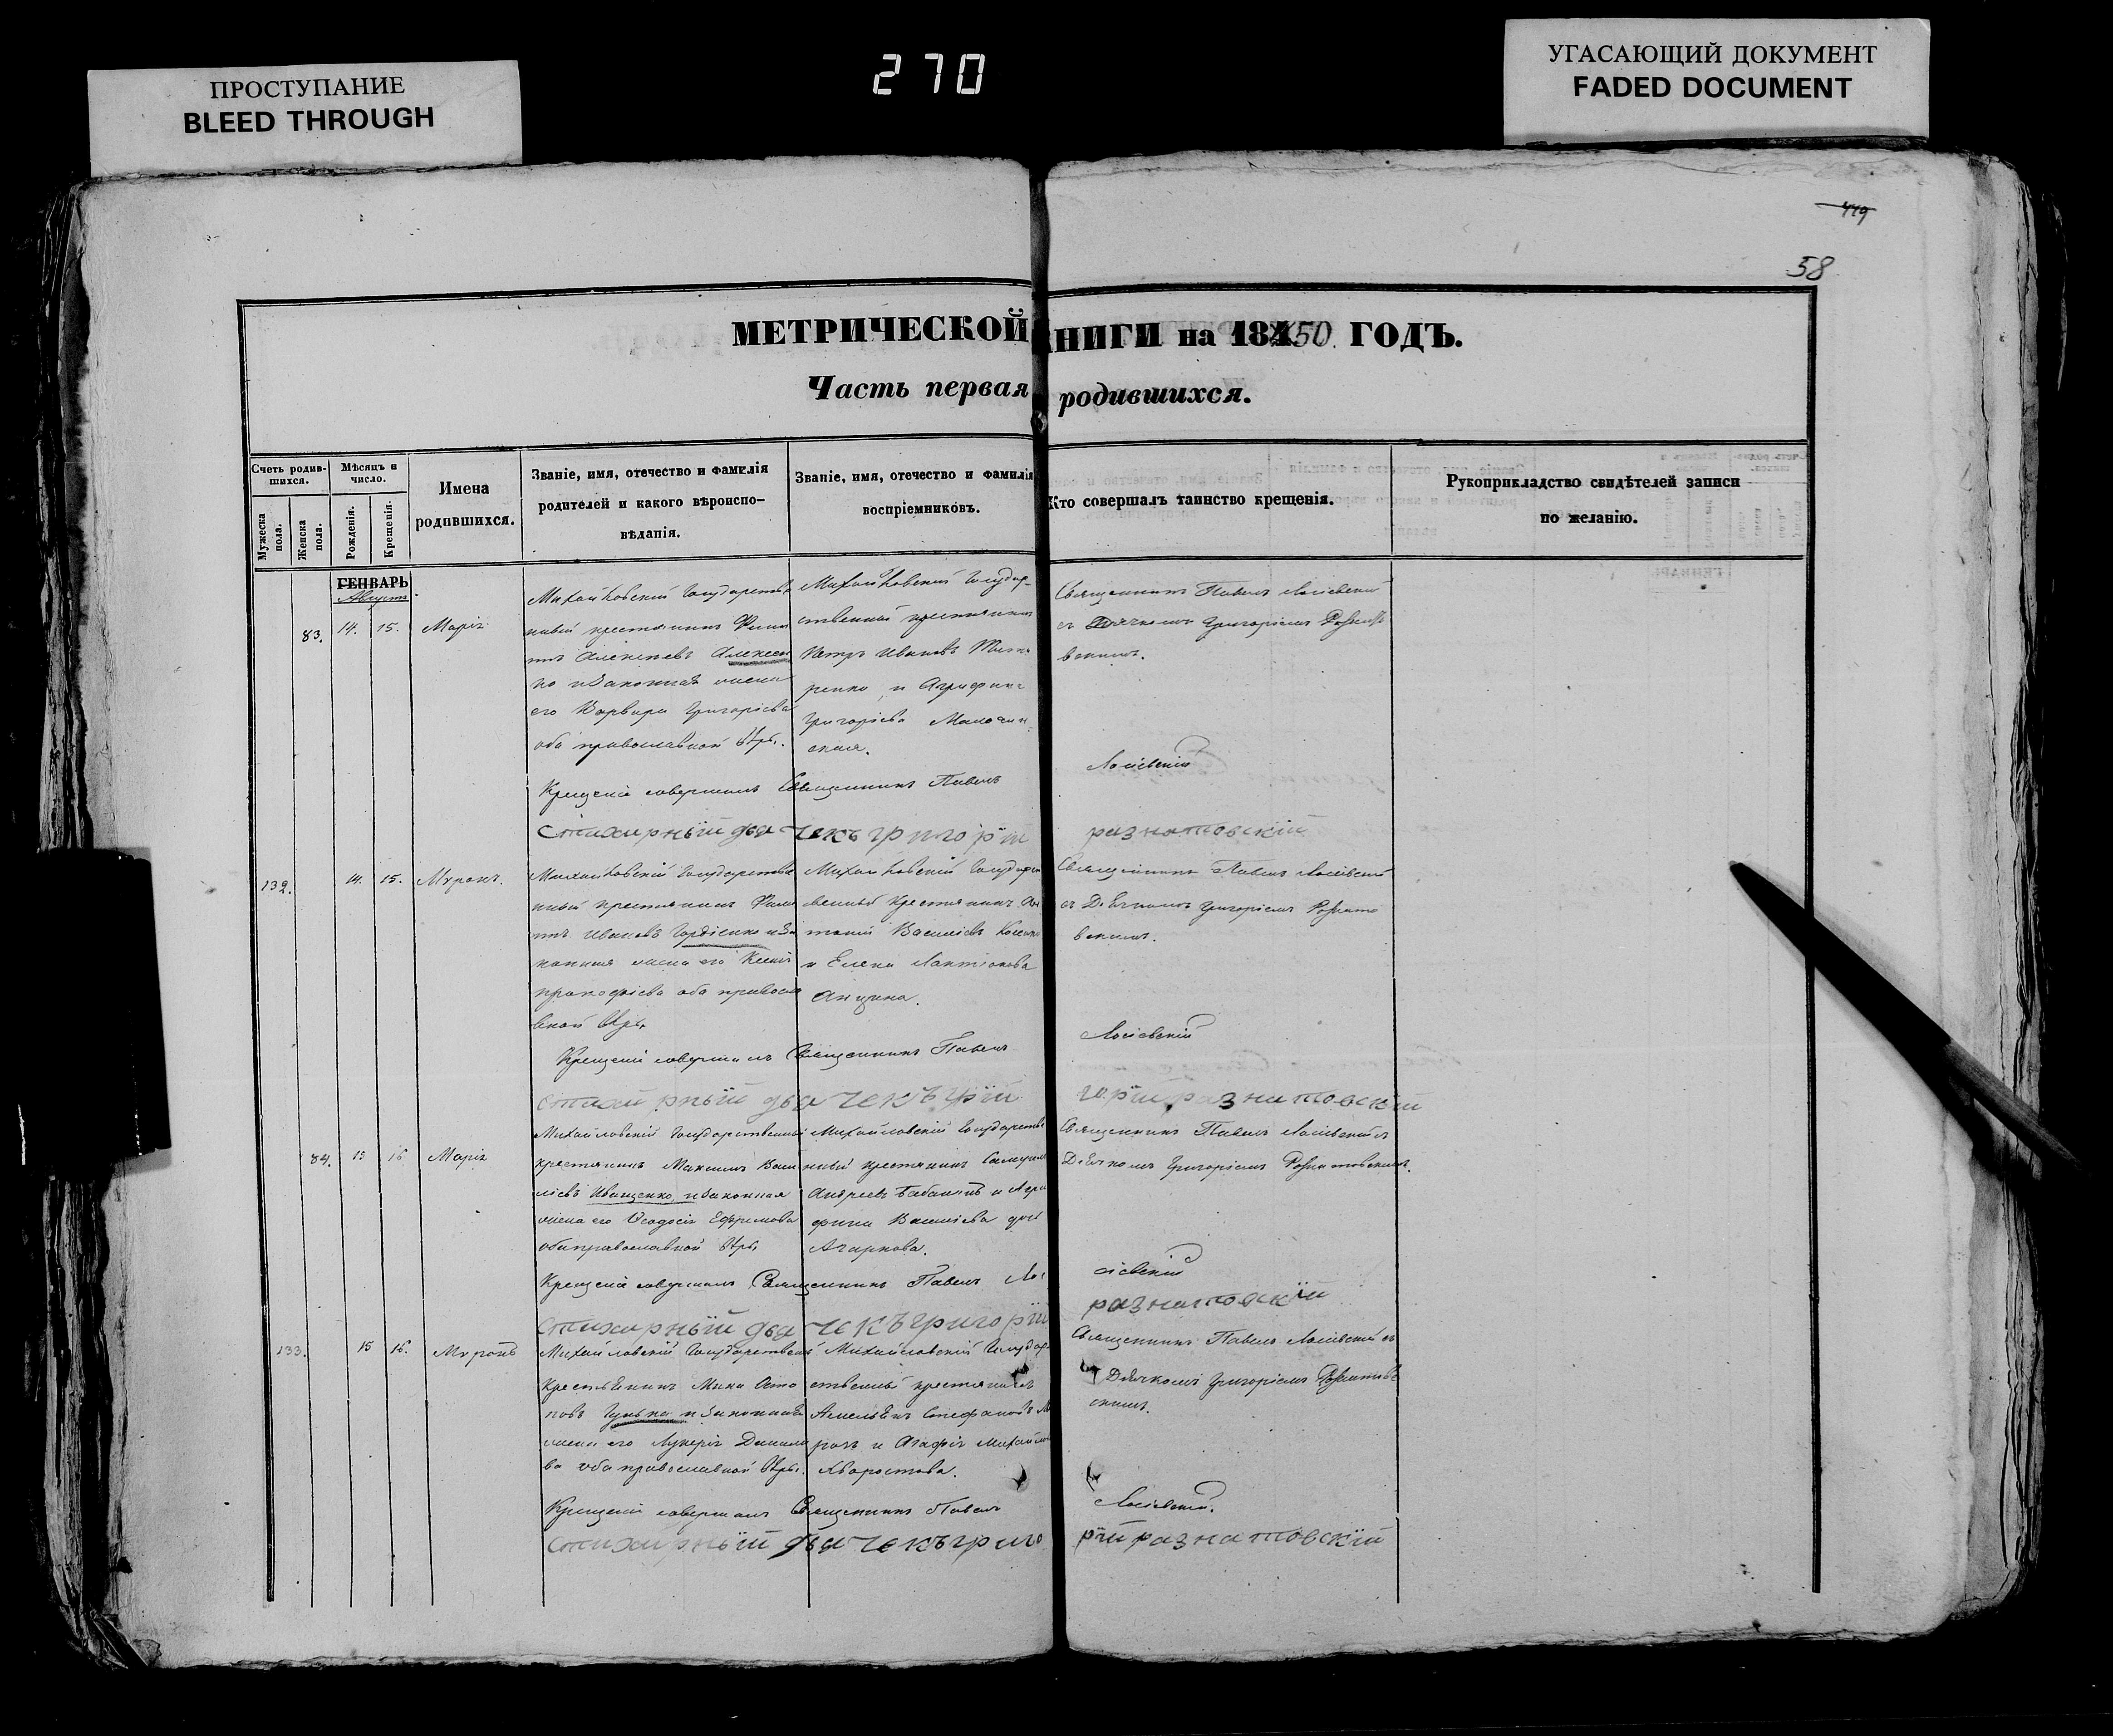 ПРОСТУПАНИЕ
BLEED THROUGH
270
УГАСАЮЩИЙ ДОКУМЕНТ
FADED DOCUMENT
419
58
МЕТРИЧЕСКОЙ КНИГИ на 1850 ГОДЪ.
Часть первая родившихся.
Счетъ родив-
шихся.
Мужеска
пола.
Женска
пола.
Мѣсяцъ и
число.
Рожденія.
Крещенія.
Имена
родившихся.
Званіе, имя, отечество и фамилія
родителей и какого вѣроиспо-
вѣданія.
Званіе, имя, отечество и фамилія
воспріемниковъ.
Кто совершалъ таинство крещенія.
Рукоприкладство свидѣтелей записи
по желанію.
ГЕНВАРЬ
Августъ
83. 14. 15. Марія
Михайловскій Государстве
нный крестьянинъ Филип
пъ Алексѣевъ Алексеен
ко и законная жена
его Варвара Григорієва
оба православной вѣры.
Михайловскій Государ-
ственный крестьянинъ
Петръ Ивановъ
и Агрипина
Григорієва
ская.
Священникъ Павелъ Лосіевскій
съ Дьячкомъ Григоріемъ Рознатов
скимъ.
Крещеніе совершалъ Священникъ Павелъ Лосіевскій
стихарный дьячекъ григорій разнатовскій
132. 14. 15. Муронъ.
Михайловскій Государстве
нный крестьянинъ Филип
пъ Ивановъ Гордіенко и за
конная жена его Ксенія
Прокофієва оба правосла
вной вѣры
Михайловскій Государст
венный крестьянинъ
Василіевъ
и Елена Лактіонова
Свищенникъ Павелъ Лосіевскій
съ Дьячкомъ Григоріемъ Рознато
вскимъ.
Крещеніе совершалъ Священникъ Павелъ Лосіевскій
стихарный дьячекъ григорій разнатовскій
84. 15 16 Марія
Михайловскій Государственный
крестьянинъ Максимъ Васи
ліевъ Иващенко, и законная
жена его Феодосія Ефремова
оба православной вѣры
Михайловскій Государстве
нный крестьянинъ Самуилъ
Андреевъ Бабакинъ и Агри
фина Василіева дочь
Агаркова.
Священникъ Павелъ Лосіевскій съ
Дьячкомъ Григоріемъ Рознатовскимъ.
Крещеніе совершалъ Священникъ Павелъ Лосіевскій
стихарный дьячекъ григорій разнатовскій
133. 15 16. Муронъ
Михайловскій Государственный
Крестьянинъ Мина Осто
повъ Гунька и законная
жена его Лукерія Данило
ва оба православной вѣры.
Михайловскій Государ
ственный крестьянинъ
Емельянъ Стефановъ
и Агафія Михайло
Хворостова.
Священникъ Павелъ Лосіевскій съ
Дьячкомъ Григоріемъ Рознатов
скимъ.
Крещеніе совершалъ Священникъ Павелъ Лосіевскій.
стихарный дьячекъ григорій разнатовскій